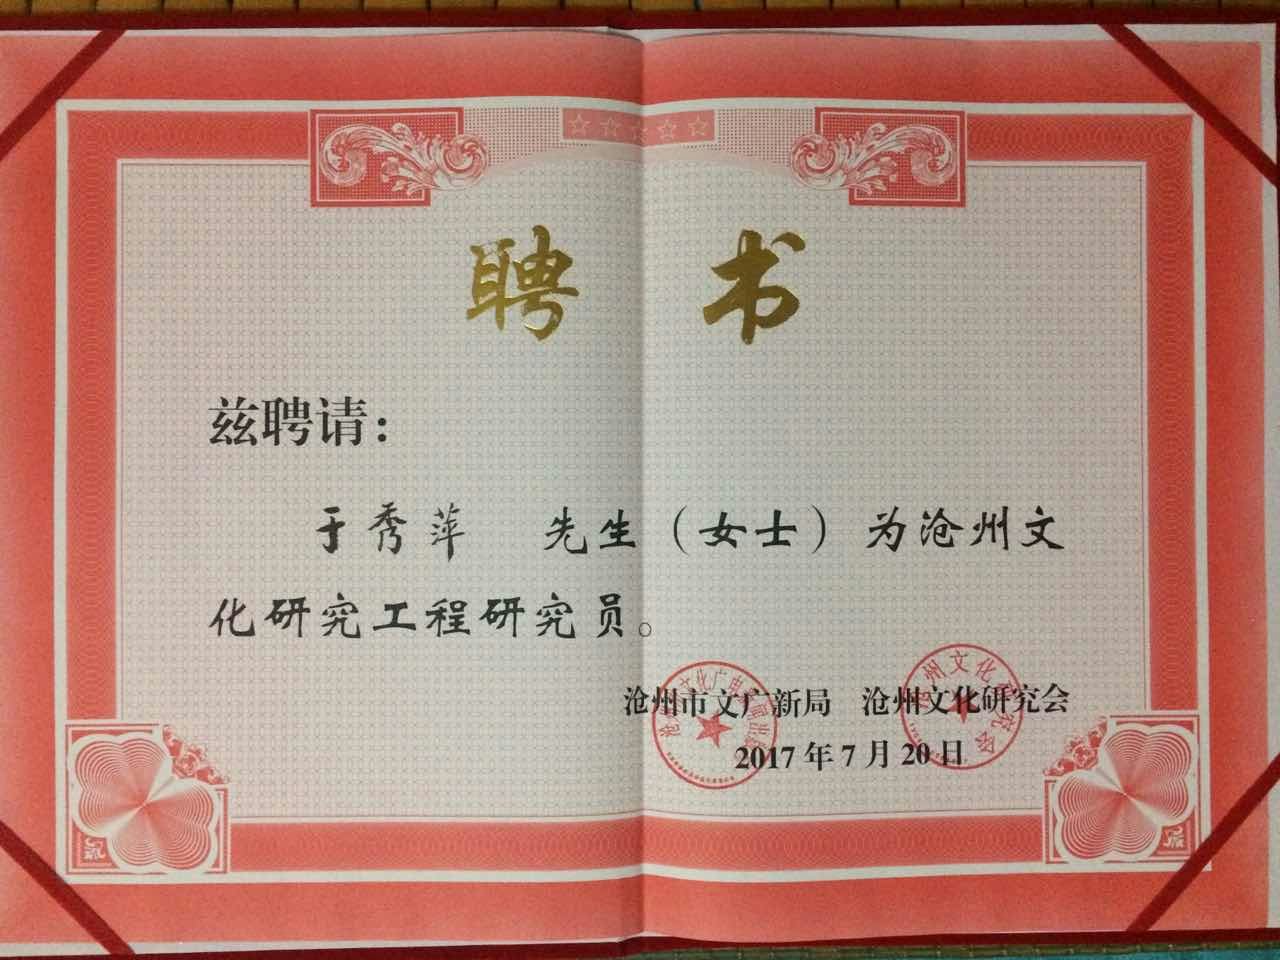 聘 书
兹聘请：
于秀萍 先生（女士）为沧州文
化研究工程研究员。
沧州市文广新局 沧州文化研究会
2017年7月20日